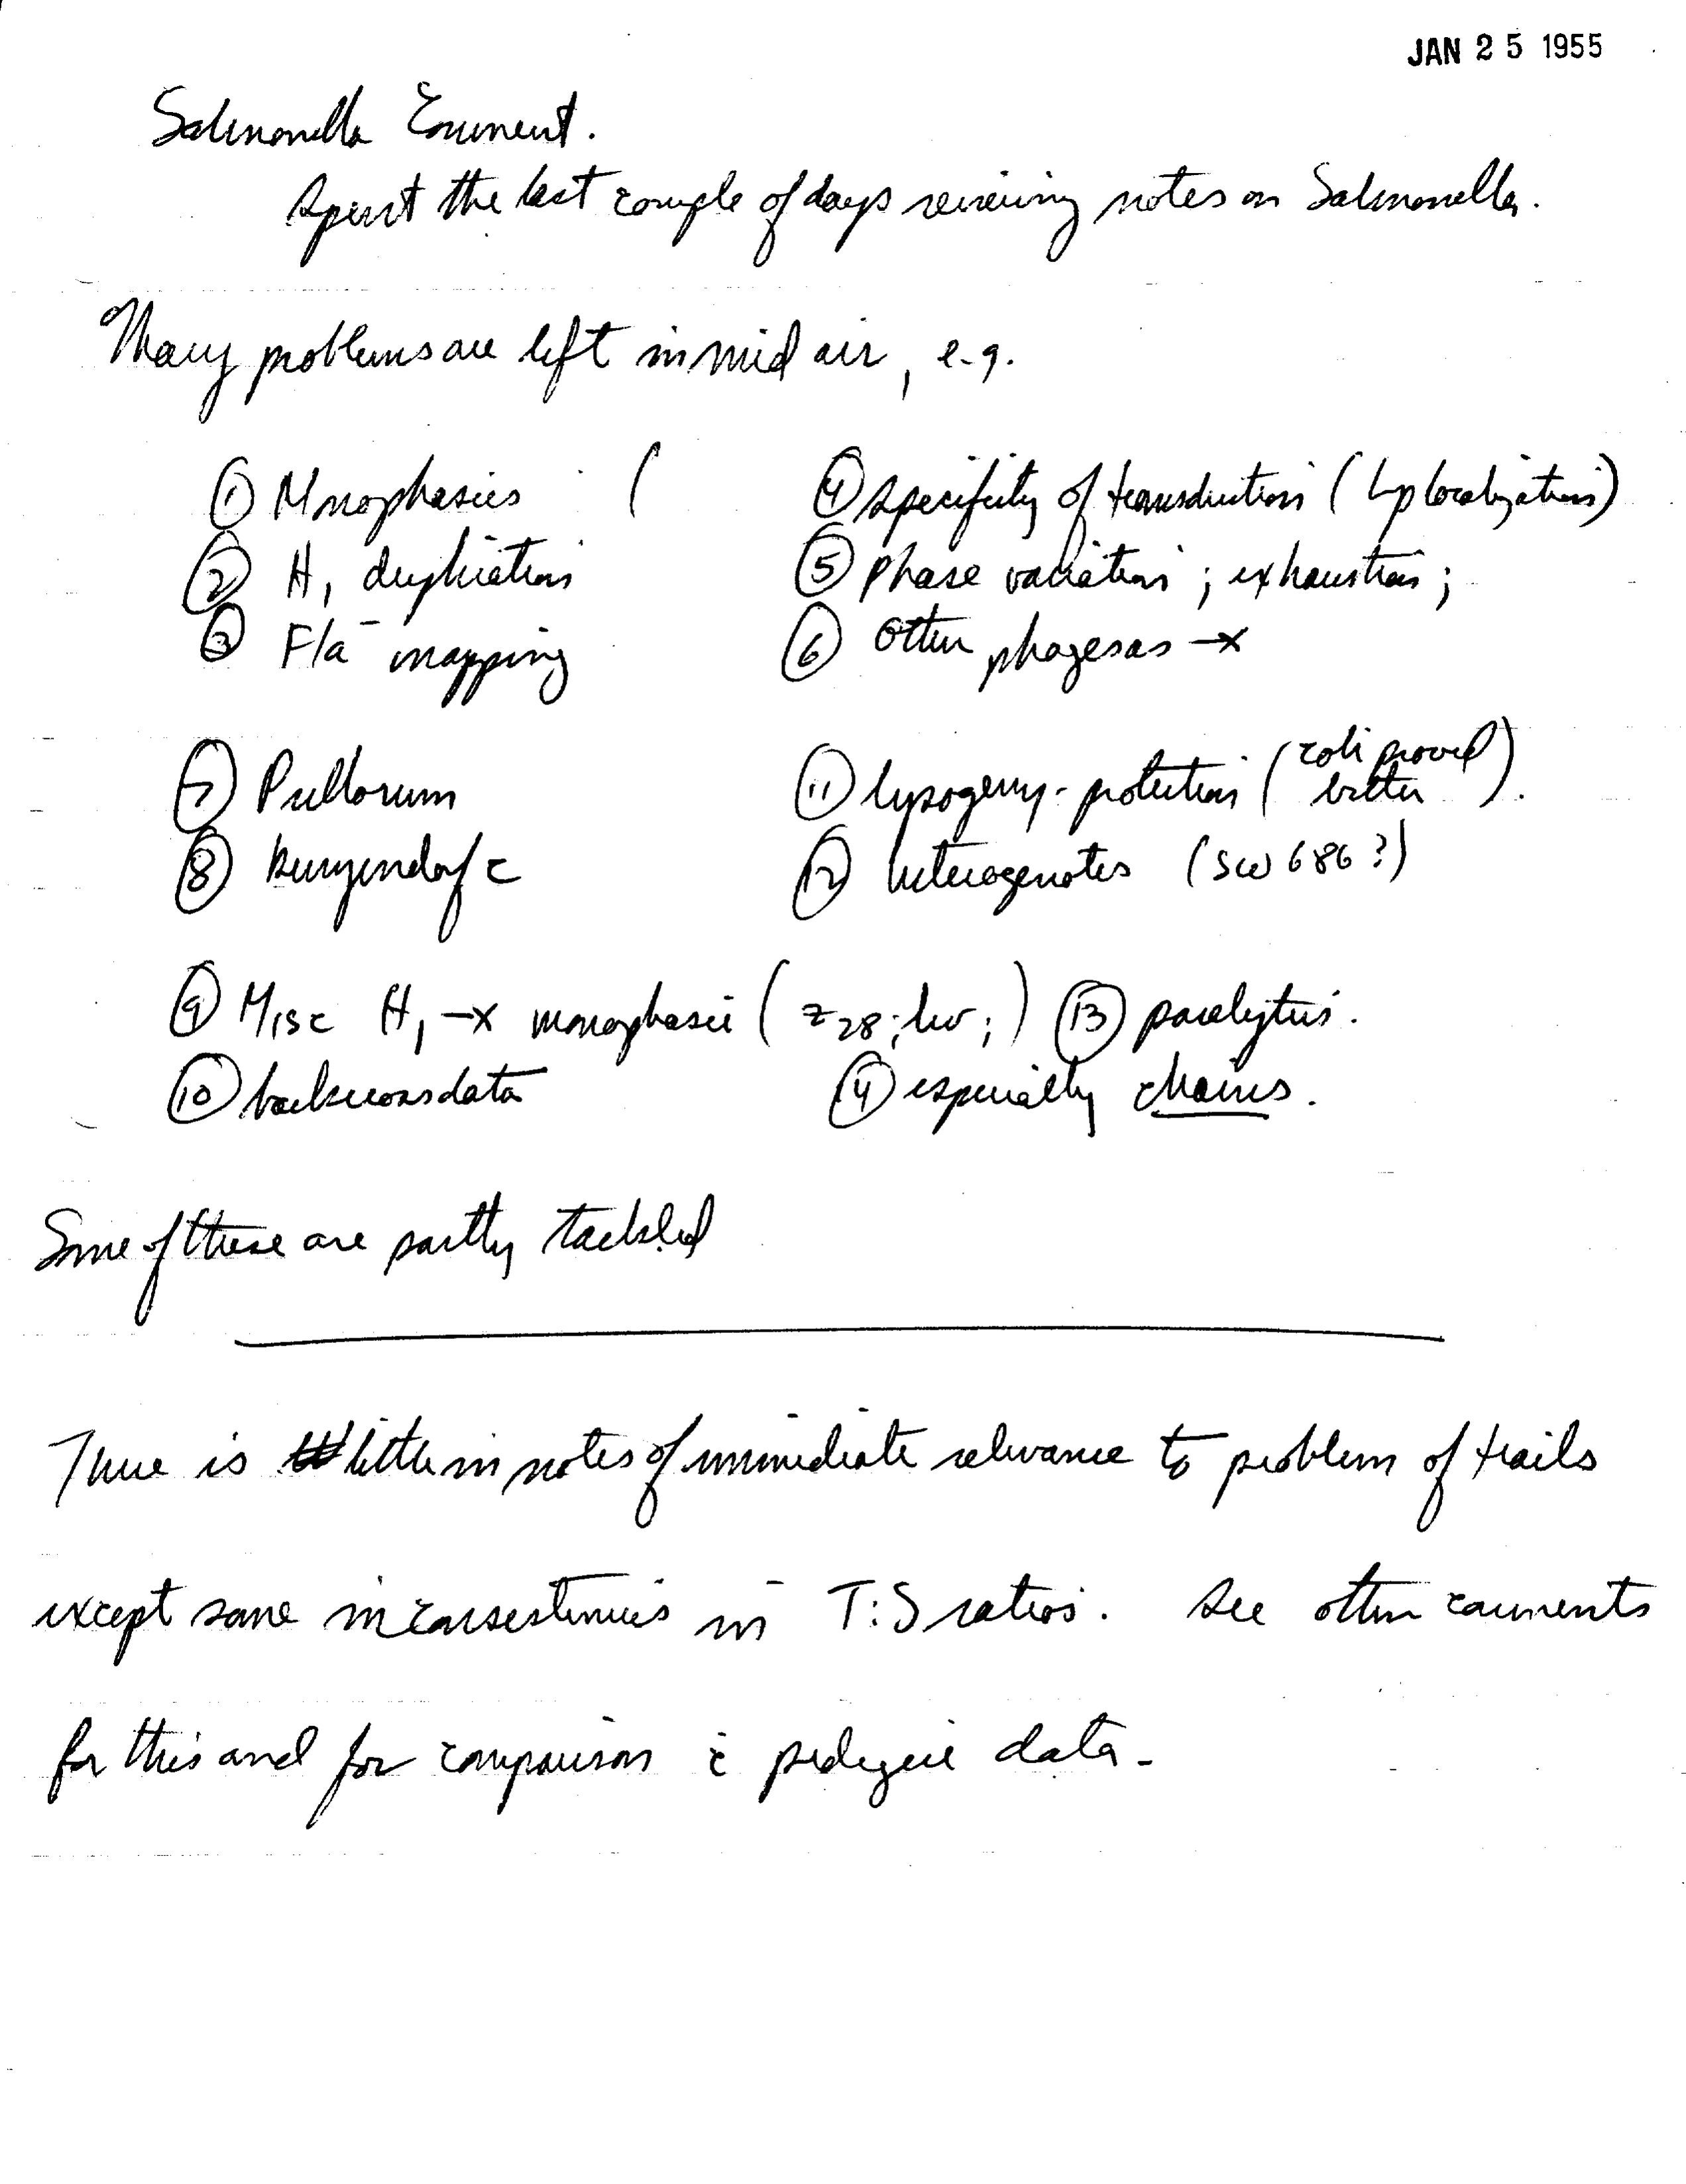 JAN 25 1955
Salmonella Comment.
Spent the last couple of days reviewing notes on Salmonella.
Many problems are left in mid air, e.g.
① Monophasics (
④ specificity of transduction (Lp localization)
② H1 duplication
⑤ Phase variation; exhaustion;
③ Fla- mapping
⑥ Other phages as —x
⑦ Pullorum
⑪ lysogeny-protection (coli proved better).
⑧
⑫ heterogenotes (SW 686?)
⑨ Misc H1 —x monophasic (z28; lw;) ⑬ paralytics.
⑩ backcross data
⑭ especially chains.
Some of these are partly tackled
There is little in notes of immediate relevance to problem of trails
except some inconsistencies in T:S ratios. See other comments
for this and for comparison c̄ pedigree data.